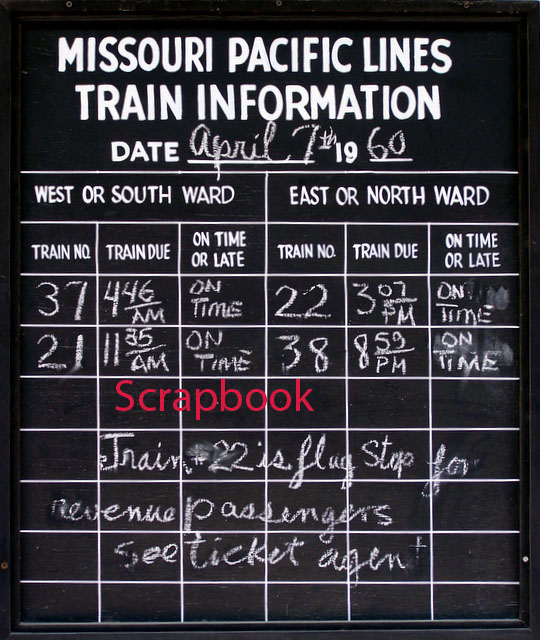 MISSOURI PACIFIC LINES
TRAIN INFORMATION
DATE April 7th 19 60
WEST OR SOUTH WARD EAST OR NORTH WARD
TRAIN NO. TRAIN DUE ON TIME OR LATE TRAIN NO. TRAIN DUE ON TIME OR LATE
37 4 46 AM ON TIME 22 3 07 PM ON TIME
21 11 35 AM ON TIME 38 8 59 PM ON TIME
Scrapbook
Train #22 is flag Stop for
revenue passengers
see ticket agent